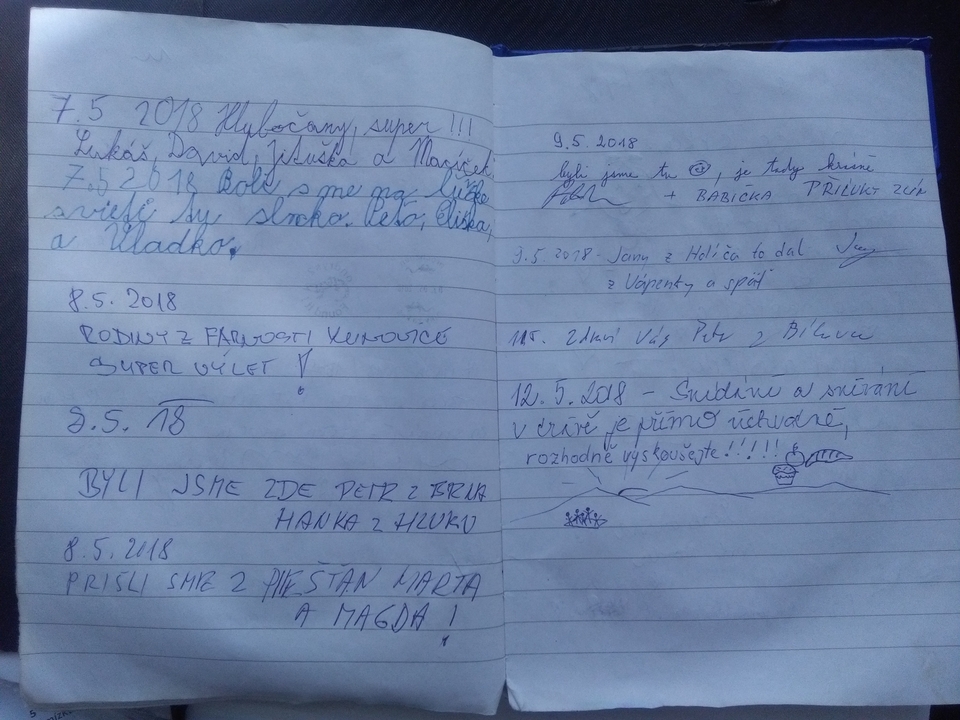 7.5 2018 Hlybočany, super !!!
Lukáš, David, Jituška a
7.5 2018 Boli sme na
svieti tu slnko. Peťo, Eliška,
a Vladko.
8.5.2018
RODINY Z FARNOSTI KUNOVICE
SUPER VÝLET !
8.5. 18
BYLI JSME ZDE PETR Z BRNA
HANKA Z HLUKU
8.5.2018
PRIŠLI SME Z PIEŠŤAN MARTA
A MAGDA !
9.5.2018
byli jsme tu, je tady krásně
+ BABIČKA PŘÍLUKY ZLÍN
9.5.2018 - Jany z Holíča to dal
z Vápenky a späť
11.5. Zdraví Vás Petr z
12.5.2018 - Snídání a snívání
v trávě je přímo úchvatné,
rozhodně vyskoušejte!!!!!!